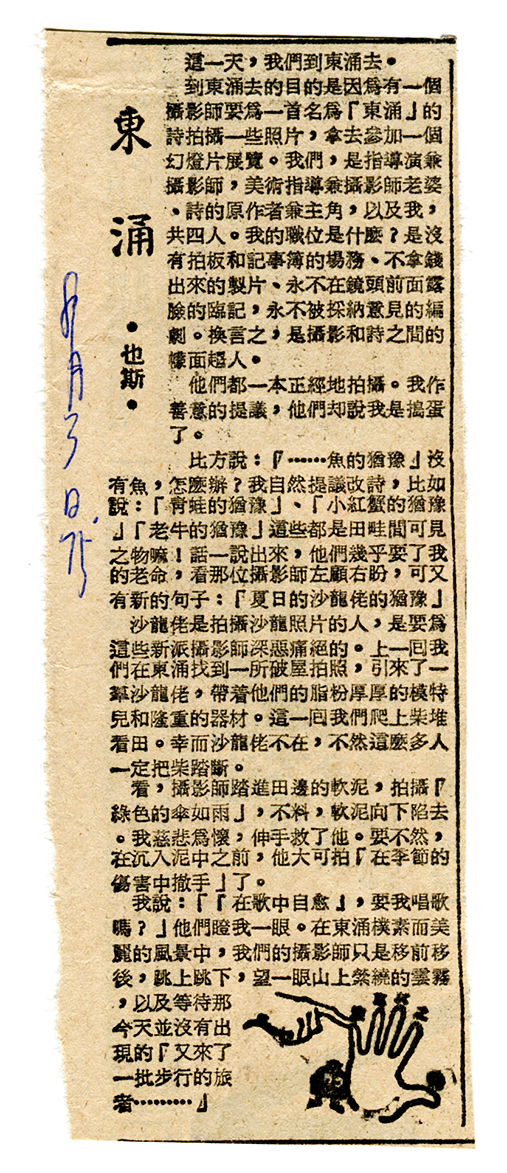 東涌
•也斯•
這一天，我們到東涌去。
到東涌去的目的是因為有一個
攝影師要為一首名為「東涌」的
詩拍攝一些照片，拿去參加一個
幻燈片展覽。我們，是指導演兼
攝影師，美術指導兼攝影師老婆
、詩的原作者兼主角，以及我，
共四人。我的職位是什麽？是沒
有拍板和記事簿的場務、不拿錢
出來的製片、永不在鏡頭前面露
臉的臨記，永不被採納意見的編
劇。換言之，是攝影和詩之間的
幪面超人。
他們都一本正經地拍攝。我作
善意的提議，他們却說我是搗蛋
了。
比方說：『……魚的猶豫』沒
有魚，怎麽辦？我自然提議改詩，比如
說：「靑蛙的猶豫」、「小紅蟹的猶豫
」「老牛的猶豫」這些都是田畦間可見
之物嘛！話一說出來，他們幾乎要了我
的老命，看那位攝影師左顧右盼，可又
有新的句子：「夏日的沙龍佬的猶豫」
沙龍佬是拍攝沙龍照片的人，是要為
這些新派攝影師深惡痛絕的。上一回我
們在東涌找到一所破屋拍照，引來了一
羣沙龍佬，帶着他們的脂粉厚厚的模特
兒和隆重的器材。這一回我們爬上柴堆
看田。幸而沙龍佬不在，不然這麽多人
一定把柴踏斷。
看，攝影師踏進田邊的軟泥，拍攝『
綠色的傘如雨」，不料，軟泥向下陷去
。我慈悲為懷，伸手救了他。要不然，
在沉入泥中之前，他大可拍「在季節的
傷害中撤手」了。
我說：「『在歌中自愈』，要我唱歌
嗎？」他們瞪我一眼。在東涌樸素而美
麗的風景中，我們的攝影師只是移前移
後，跳上跳下，望一眼山上縈繞的雲霧
，以及等待那
今天並沒有出
現的『又來了
一批步行的旅
者………』